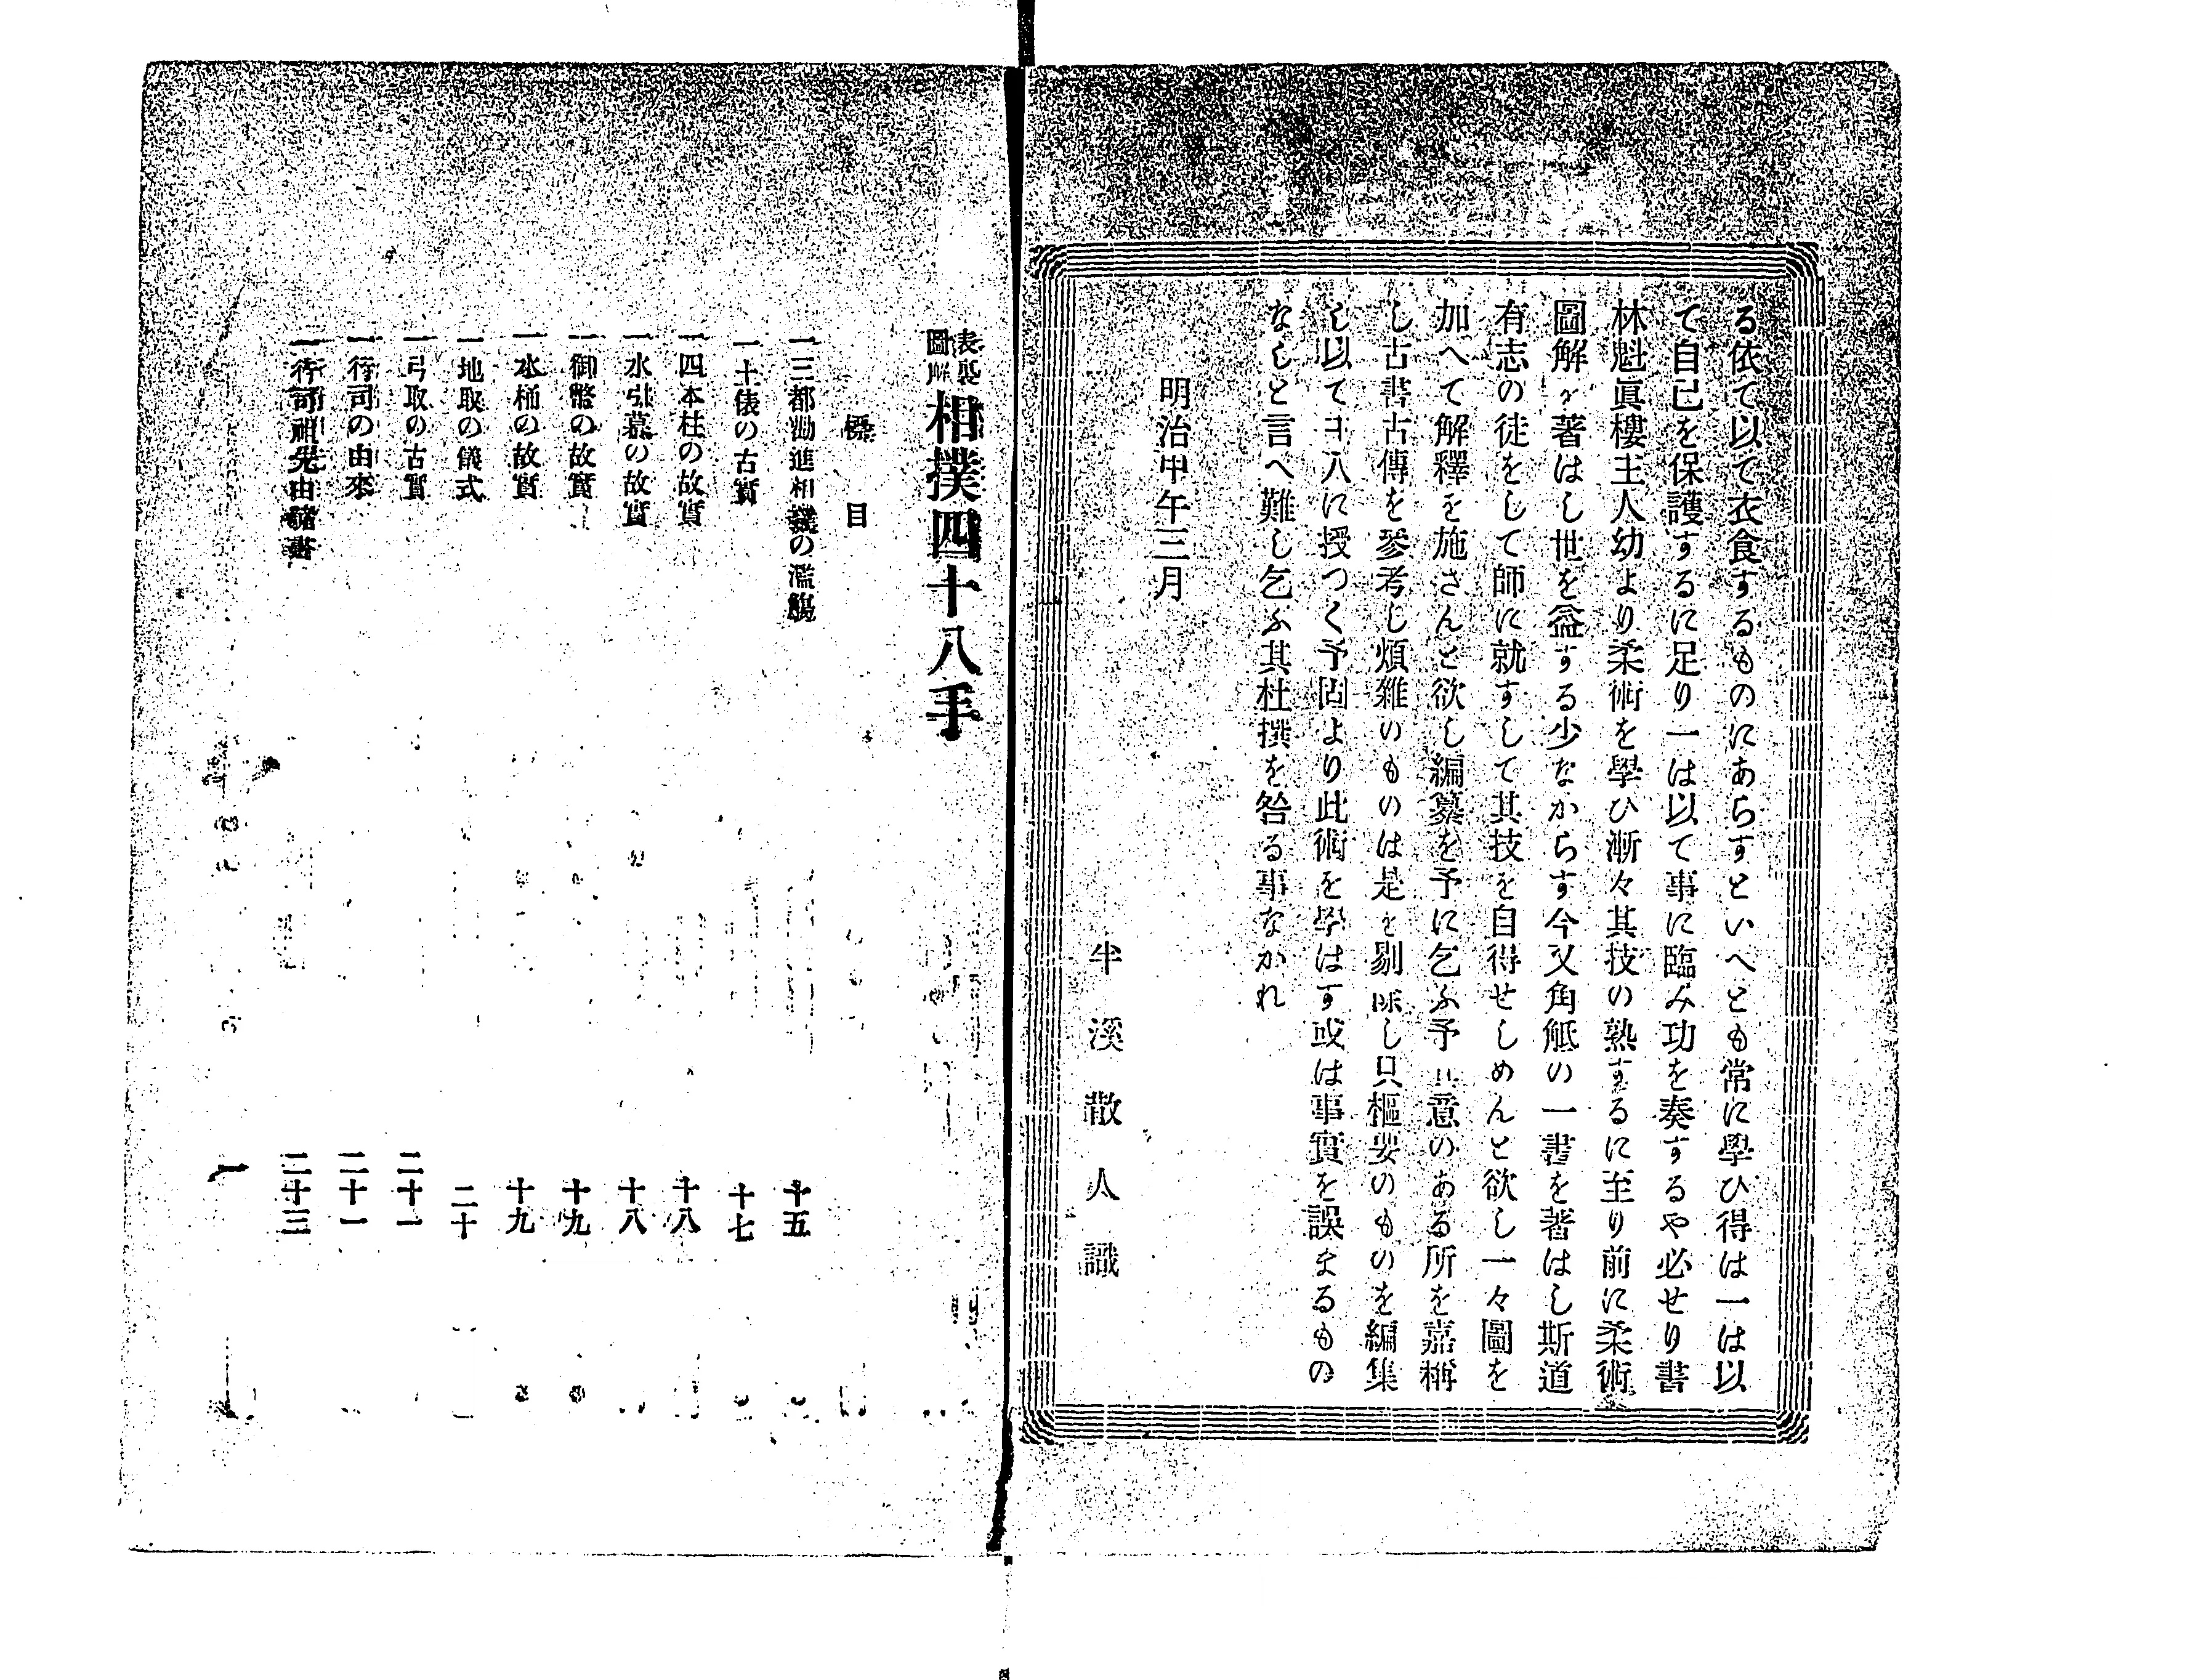 る依て以て衣食するものにあらすといへとも常に學ひ得は一は以
て自己を保護するに足り一は以て事に臨み功を奏するや必せり書
林魁眞樓主人幼より柔術を學ひ漸々其技の熟するに至り前に柔術
圖解を著はし世を益する少なからす今又角觝の一書を著はし斯道
有志の徒をして師に就すして其技を自得せしめんと欲し一々圖を
加へて解釋を施さんと欲し編纂を予に乞ふ予は意のある所を嘉稱
し古書古傳を參考し煩雜のものは是を剔除し只樞要のものを編集
し以て主人に授つく予固より此術を學はす或は事實を誤まるもの
なしと言へ難し乞ふ其杜撰を咎る事なかれ
明治甲午三月
半溪散人識
表裏圖解 相撲四十八手
標目
一三都勸進相撲の濫觴 十五
一土俵の古實 十七
一四本柱の故實 十八
一水引幕の故實 十八
一御幣の故實 十九
一水桶の故實 十九
一地取の儀式 二十
一弓取の古實 二十一
一行司の由來 二十一
一行司祖先由緒書 二十三
一